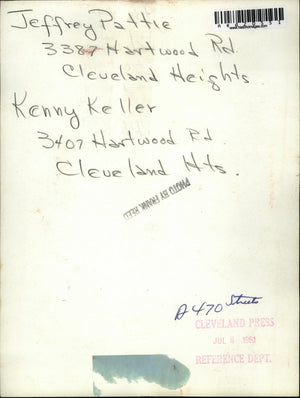 Jeffrey Pattie
3387 Hartwood Rd
Cleveland Heights
Kenny Keller
3407 Hartwood Rd.
Cleveland Hts.
PHOTO BY FRANK REED
A470 Streets
CLEVELAND PRESS
JUL 8 1961
REFERENCE DEPT.